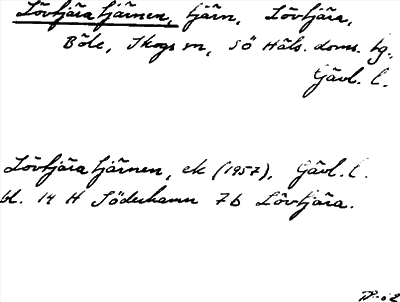 Lövtjäratjärnen, tjärn, Lövtjära,
Böle, Skogs sn, SÖ Häls. doms. tg.,
Gävl. l.
Lövtjäratjärnen, ek (1957), Gävl. l.
bl. 14 H Söderhamn 7b Lövtjära.